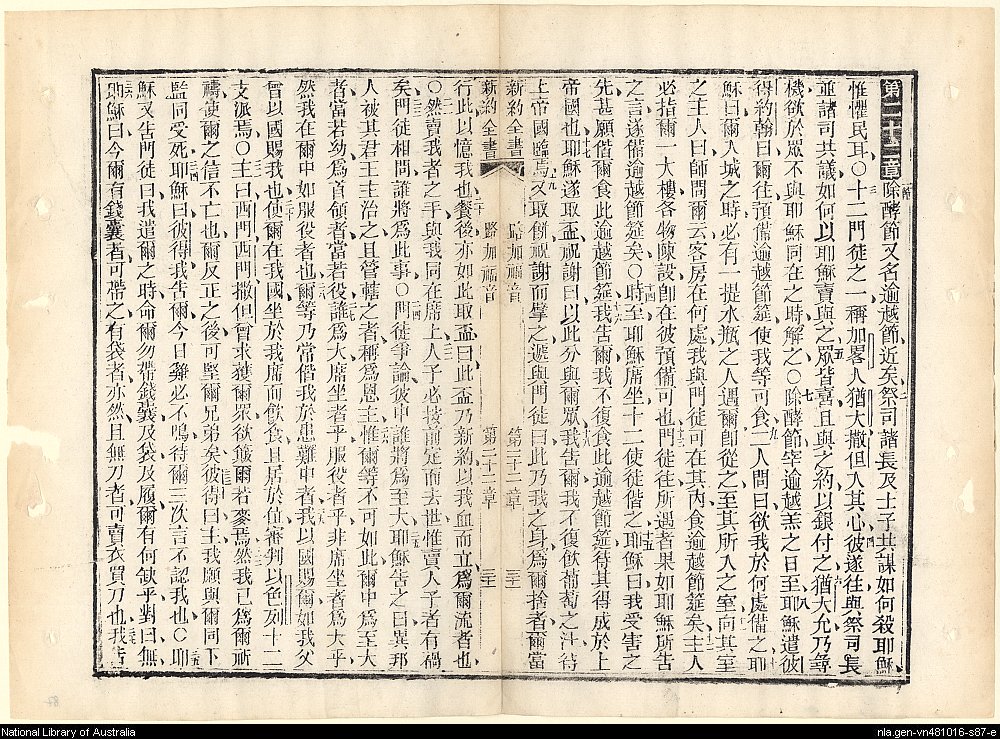 第二十二章 除酵節又名逾越節近矣祭司諸長及士子共謀如何殺耶穌
惟懼民耳〇十二門徒之一稱加畧人猶大撒但入其心彼遂往與祭司長
並諸司共議如何以耶穌賣與之眾皆喜且與之約以銀付之猶大允乃尋
機欲於眾不與耶穌同在之時解之〇除酵節宰逾越羔之日至耶穌遣彼
得約翰曰爾往預備逾越節筵使我等可食二人問曰欲我於何處備之耶
穌曰爾入城之時必有一提水瓶之人遇爾卽從之至其所入之室向其室
之主人曰師問爾云客房在何處我與門徒可在其內食逾越節筵矣主人
必指爾一大樓各物陳設卽在彼預備可也門徒往所遇者果如耶穌所告
之言遂備逾越節筵矣〇時至耶穌席坐十二使徒偕之耶穌曰我受害之
先甚願偕爾食此逾越節筵我告爾我不復食此逾越節筵待其得成於上
帝國也耶穌遂取盃祝謝曰以此分與爾眾我告爾我不復飲葡萄之汁待
上帝國臨焉又取餅祝謝而擘之遞與門徒曰此乃我之身爲爾捨者爾當
新約全書 路加福音 第二十二章
新約全書 路加福音 第二十二章
行此以憶我也餐後亦如此取盃曰此盃乃新約以我血而立爲爾流者也
〇然賣我者之手與我同在席上人子必按前定而去世惟賣人子者有禍
矣門徒相問誰將爲此事〇門徒爭論彼中誰將爲至大耶穌告之曰異邦
人被其君王主治之且管轄之者稱爲恩主惟爾等不可如此爾中爲至大
者當若幼爲首領者當若役誰爲大席坐者乎服役者乎非席坐者爲大乎
然我在爾中如服役者也爾等乃常偕我於患難中者我以國賜爾如我父
曾以國賜我也使爾在我國坐於我席而飲食且居於位審判以色列十二
支派焉〇主曰西門西門撒但曾求獲爾眾欲簸爾若麥焉然我已爲爾祈
禱使爾之信不亡也爾反正之後可堅爾兄弟矣彼得曰主我願與爾同下
監同受死耶穌曰彼得我告爾今日雞必不鳴待爾三次言不認我也〇耶
穌又告門徒曰我遣爾之時命爾勿帶錢囊及袋及履爾有何缺乎對曰無
耶穌曰今爾有錢囊者可帶之有袋者亦然且無刀者可賣衣買刀也我告
National Library of Australia
nla.gen-vn481016-s87-e